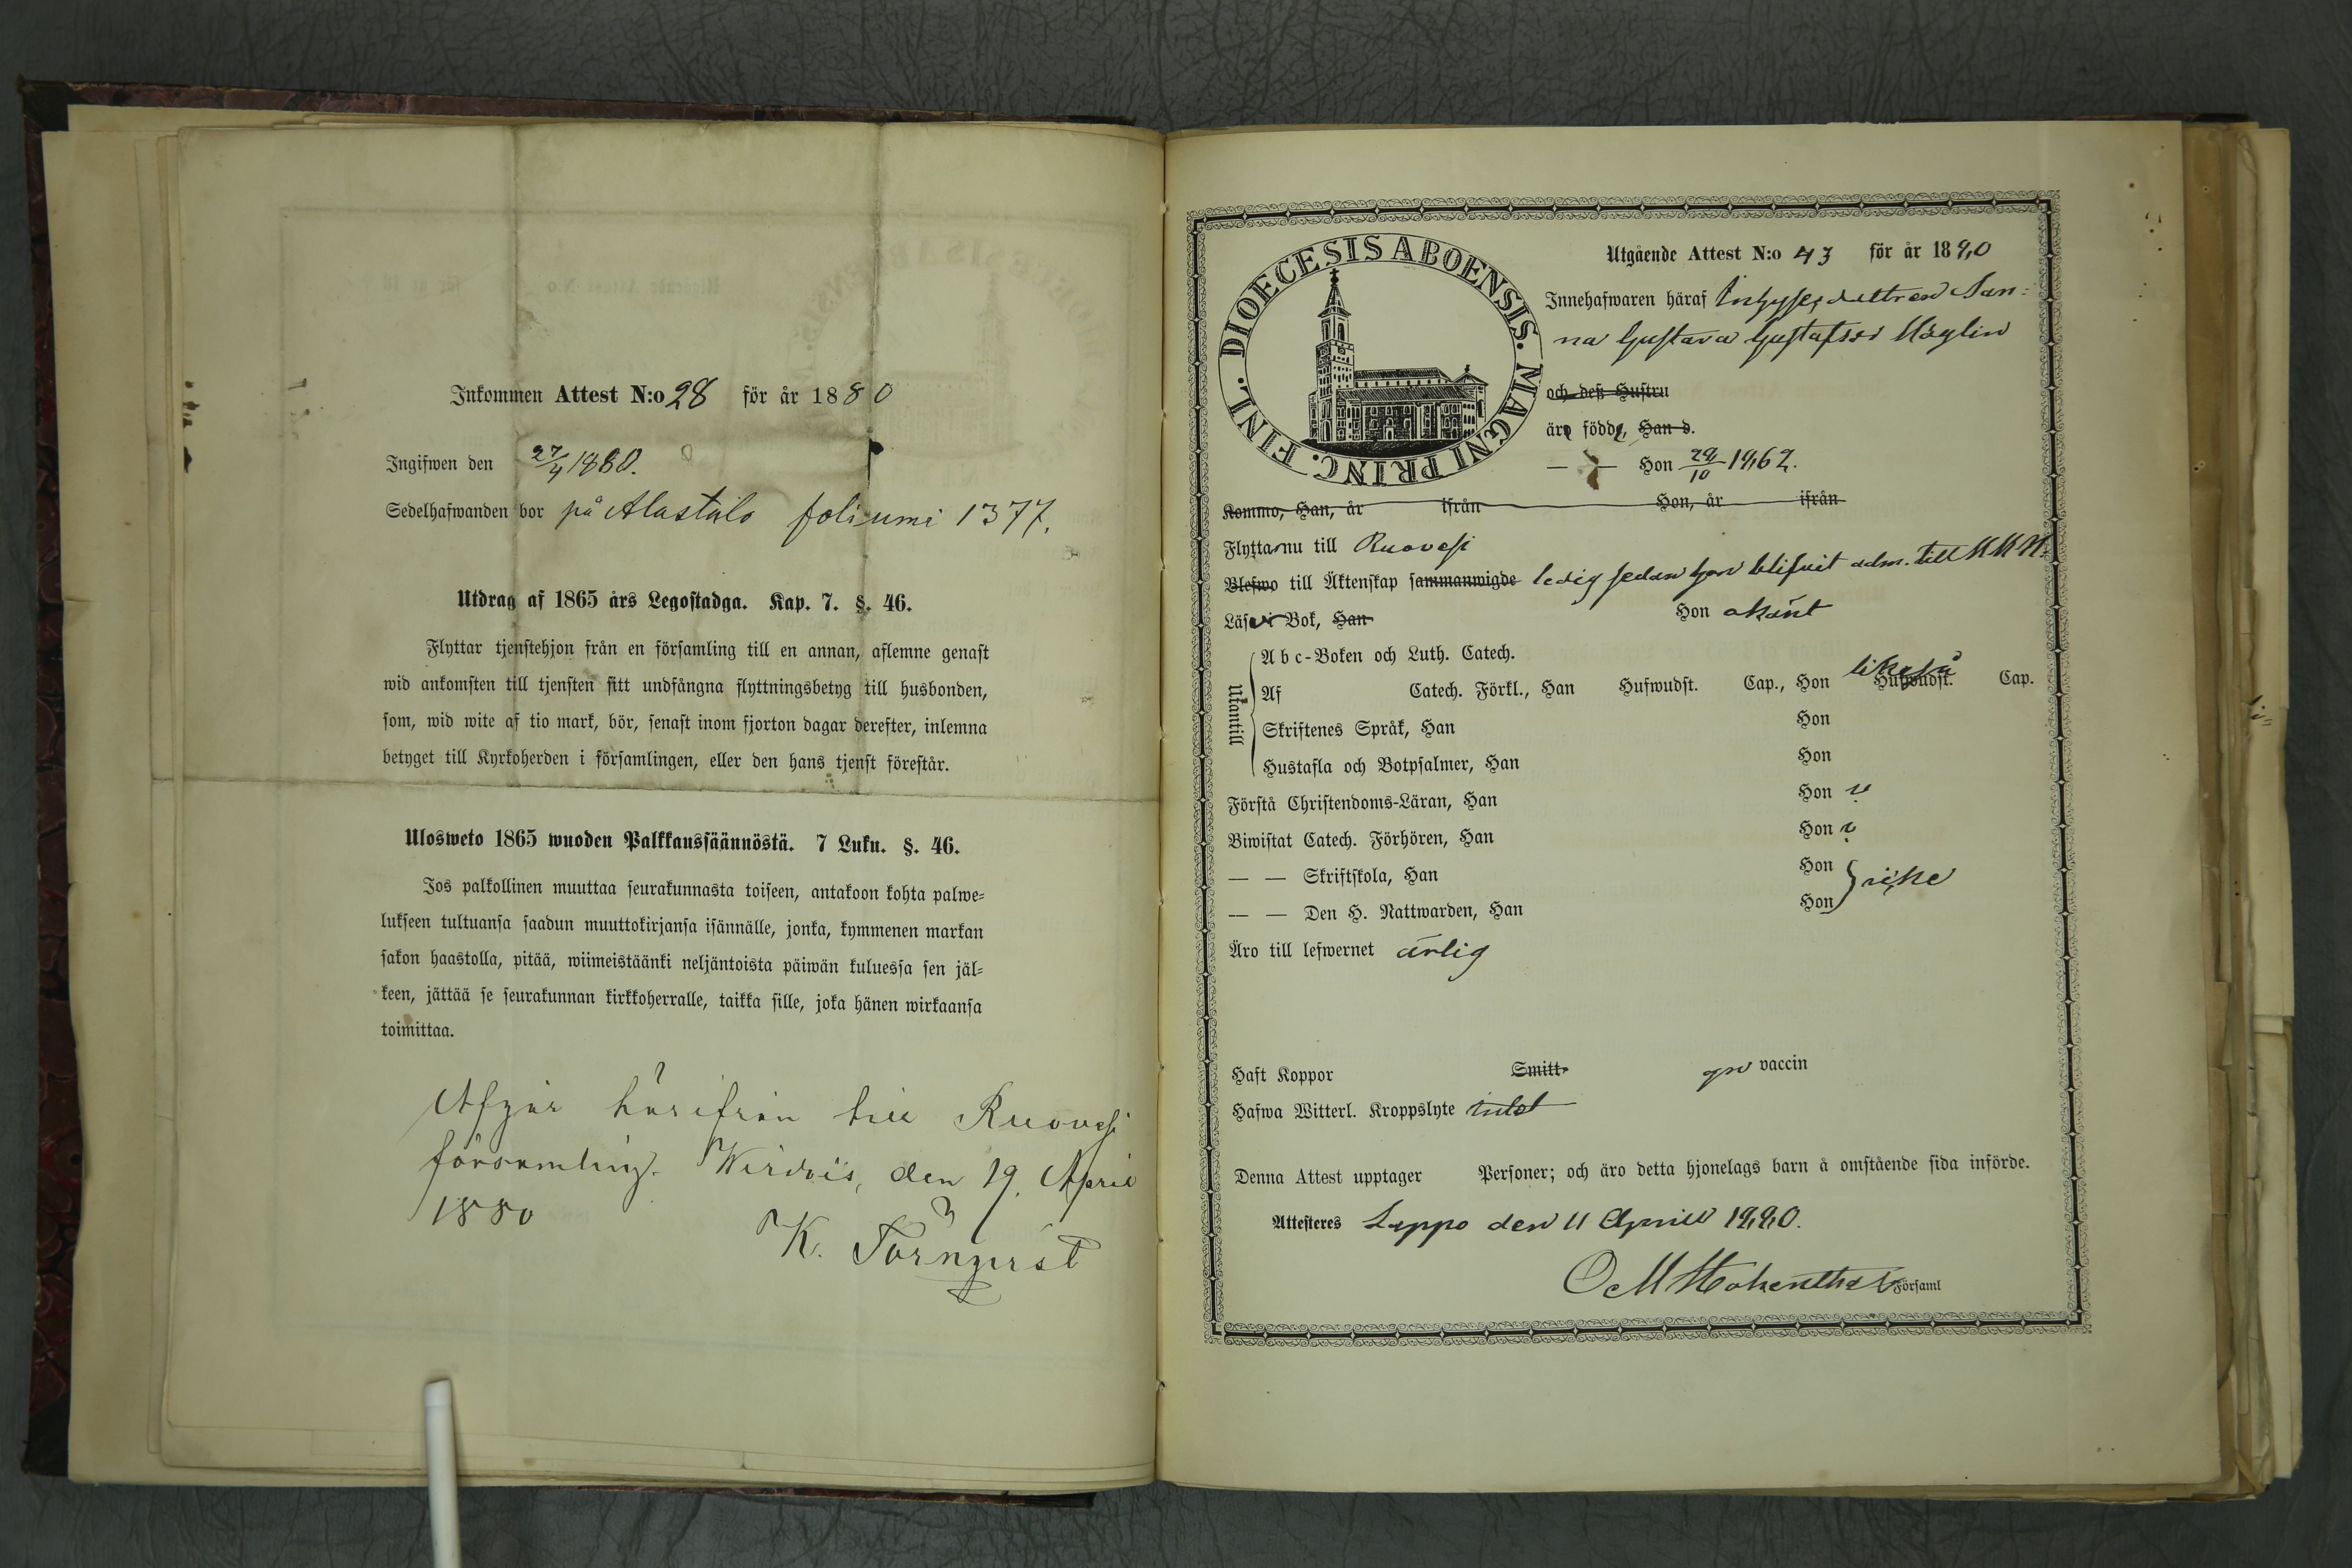 Inkommen Attest N:o 28 för år 1880
Ingifwen den 27/4 1880.
Sedelhafwanden bor på Alastalo foliumi 1377.
Utdrag af 1865 års Legostadga. Kap. 7. §. 46.
Flyttar tjenstehjon från en församling till en annan, aflemne genast
wid ankomsten till tjensten sitt undfångna flyttningsbetyg till husbonden,
som, wid wite af tio mark, bör, senast inom fjorton dagar derefter, inlemna
betyget till Kyrkoherden i församlingen, eller den hans tjenst förestår.
Ulosweto 1865 wuoden Palkkaussäännöstä. 7 Luku. §. 46.
Jos palkollinen muuttaa seurakunnasta toiseen, antakoon kohta palwe-
lukseen tultuansa saadun muuttokirjansa isännälle, jonka, kymmenen markan
sakon haastolla, pitää, wiimeistäänki neljäntoista päiwän kuluessa sen jäl-
keen, jättää se seurakunnan kirkkoherralle, taikka sille, joka hänen wirkaansa
toimittaa.
Afgår härifrån till Ruovesi
församling. Wirdois, den 19. April
1880
K. Törnqvist
DIOECESIS ABOENSIS. MAGNI PRINC. FINL.
Utgående Attest N:o 43 för år 1880
Innehafwaren häraf Inhysesdottren San-
na Gustava Gustafsd Häglin
och deß Hustru
äro födde, Han d.
— — Hon 28/10 1862.
Kommo, Han, år ifrån Hon, år ifrån
Flytta nu till Ruovesi
Blefwo till Äktenskap sammanwigde ledig sedan hon blifvit adm. till HHN.
Läsa i Bok, Han Hon okänt
Utantill
A b c-Boken och Luth. Catech.
Af Catech. Förkl., Han Hufwudst. Cap., Hon likaså Hufwudst. Cap.
Skriftenes Språk, Han Hon
Hustafla och Botpsalmer, Han Hon
Förstå Christendoms-Läran, Han Hon
Biwistat Catech. Förhören, Han Hon
— — Skriftskola, Han Hon
— — Den H. Nattwarden, Han Hon
Äro till lefwernet ärlig
Haft Koppor Smitt- vaccin
Hafwa Witterl. Kroppslyte intet
Denna Attest upptager Personer; och äro detta hjonelags barn å omstående sida införde.
Attesteres Lappo den 11 April 1880.
O M Hohenthal Församl